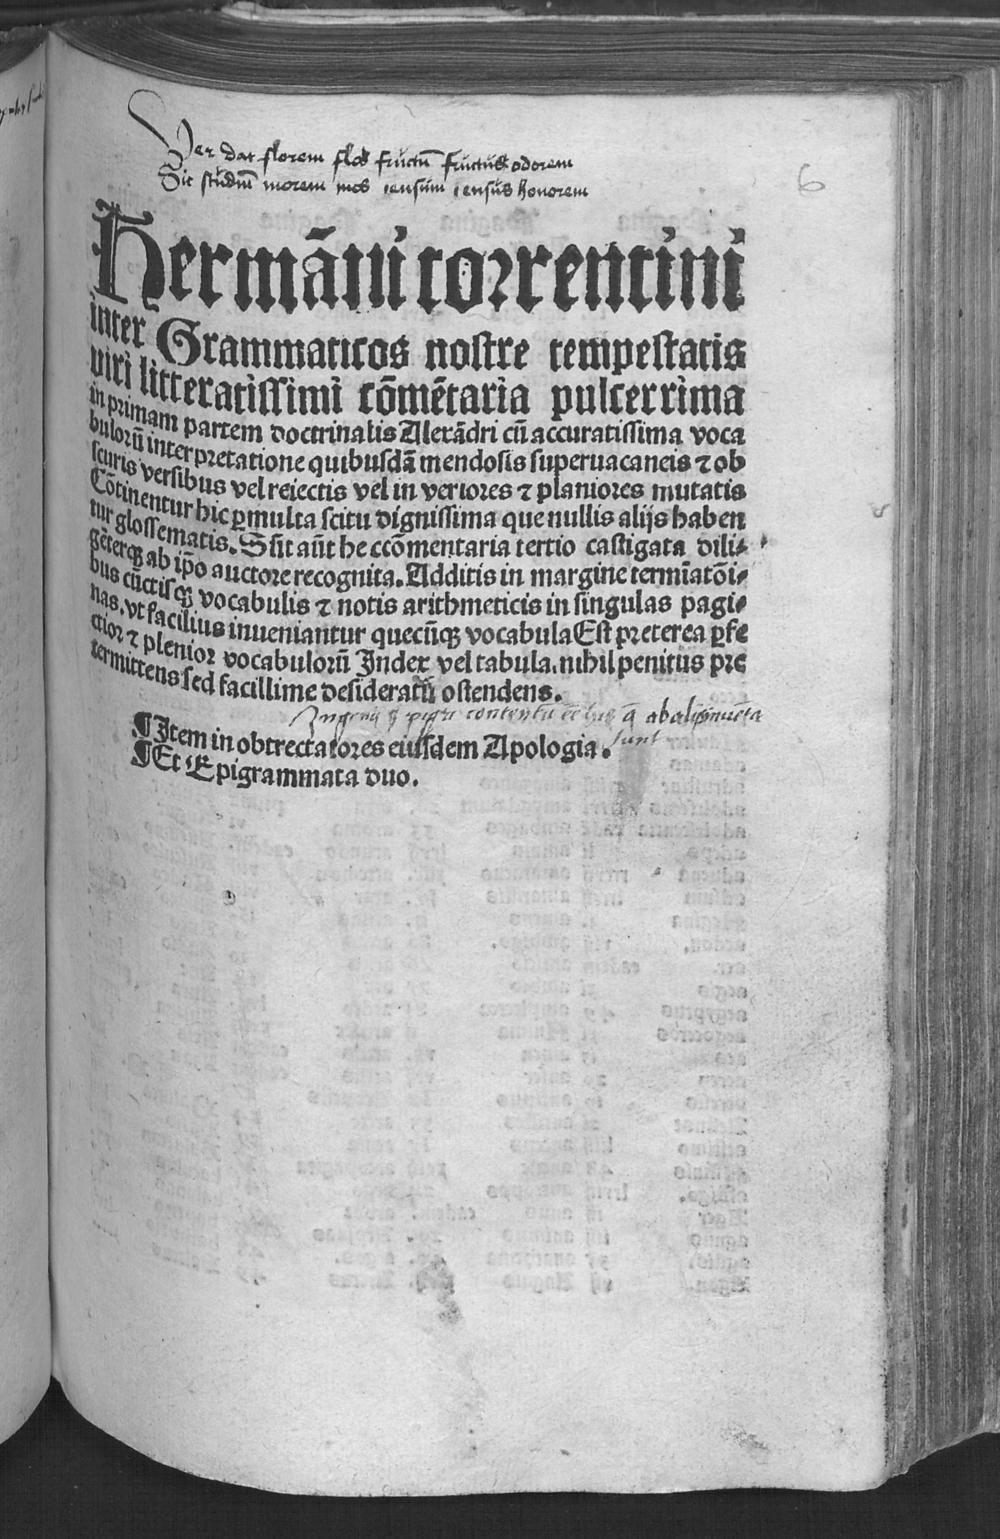 Ver dat florem flos fructū fructus odorem
Sic studiū morem mos sensum sensus honorem
6
Hermāni torrentini
inter Grammaticos nostre tempestatis
viri litteratissimi cōmētaria pulcerrima
in primam partem doctrinalis Alexādri cū accuratissima voca
bulorū interpretatione quibusdā mendosis superuacaneis ⁊ ob
scuris versibus vel reiectis vel in veriores ⁊ planiores mutatis
Cōtinentur hic ꝑmulta scitu dignissima que nullis alijs haben
tur glossematis. Sūt aūt he cōmentaria tertio castigata dili⸗
gēterqꝫ ab ip̄o auctore recognita. Additis in margine termīatōi⸗
bus cūctisqꝫ vocabulis ⁊ notis arithmeticis in singulas pagi⸗
nas. vt facilius inueniantur quecūqꝫ vocabula Est preterea ꝑfe
ctior ⁊ plenior vocabulorū Index vel tabula. nihil penitus pre
termittens sed facillime desideratū ostendens.
Ingenij ē pigri contentū eē his q̄ ab alijs inuēta
sunt
¶ Item in obtrectatores eiusdem Apologia.
¶ Et Epigrammata duo.